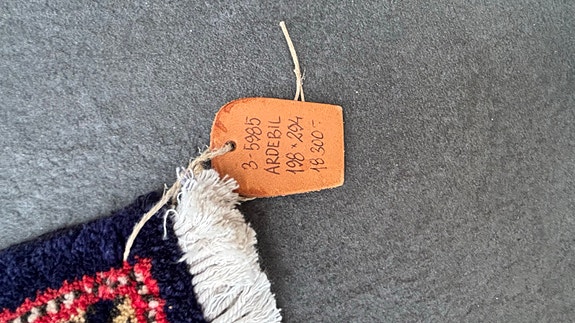 3-5985
ARDEBIL
198 x 294
18 300:-